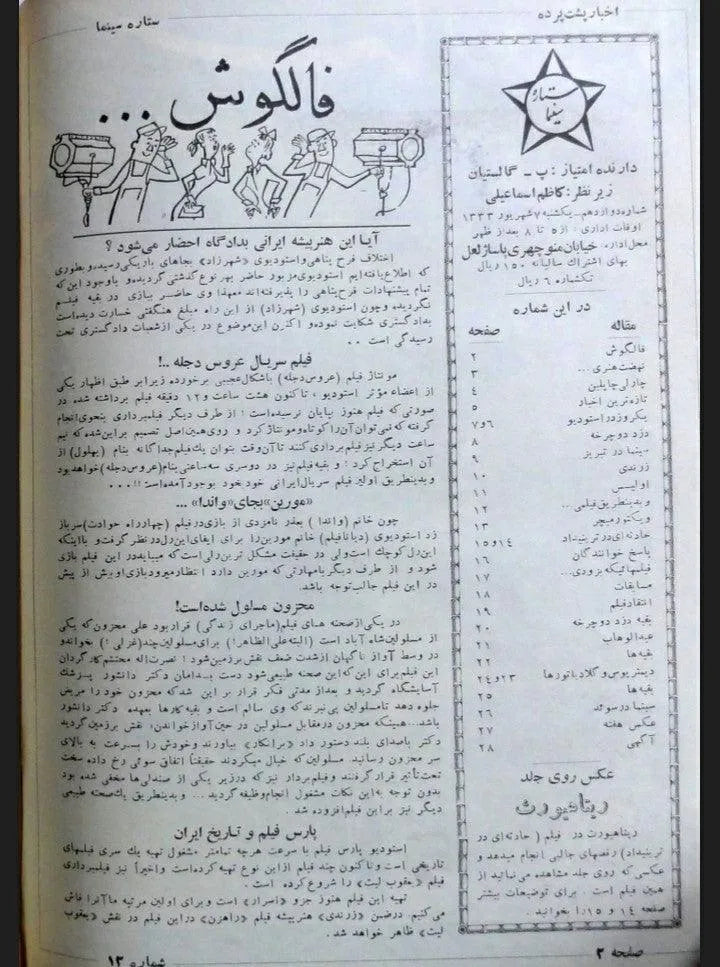 اخبار پشت پرده
ستاره سینما
ستاره
سینما
دارنده امتیاز : پ - گالستیان
زیر نظر : کاظم اسماعیلی
شماره دوازدهم - یکشنبه ۷ شهریور ۱۳۳۳
اوقات اداری : از ۵ تا ۸ بعد از ظهر
محل اداره : خیابان منوچهری پاساژ لعل
بهای اشتراک سالیانه ۱۵۰ ریال
تکشماره ۶ ریال
در این شماره
مقاله صفحه
فالگوش ۲
نهضت هنری ... ۳
چارلی چاپلین ۴
تازه‌ترین اخبار ۵
یکروز در استودیو ۶ و ۷
دزد دوچرخه ۸
سینما در تبریز ۹
زرندی ۱۰
اولیس ۱۱
و بدینطریق فیلمی... ۱۲
ویکتورمیچر ۱۳
حادثه‌ای در ترینیداد ۱۴ و ۱۵
پاسخ خوانندگان ۱۶
فیلمهائیکه بزودی... ۱۷
مسابقات ۱۸
انتقاد فیلم ۱۹
بقیه دزد دوچرخه ۲۰
عبدالوهاب ۲۱
بقیه‌ها ۲۲
دیمتریوس و گلادیاتورها ۲۳ و ۲۴
بقیه‌ها ۲۵
سینما در سوئد ۲۶
عکس هفته ۲۷
آگهی ۲۸
عکس روی جلد
ریتاهیورث
ریتاهیورث در فیلم ( حادثه‌ای در
ترینیداد ) رقصهای جالبی انجام میدهد و
عکسی که روی جلد مشاهده می‌نمائید از
همین فیلم است . برای توضیحات بیشتر
صفحه ۱۴ و ۱۵ را بخوانید .
فالگوش ...
آیا این هنرپیشه ایرانی بدادگاه احضار می‌شود ؟
اختلاف فرح پناهی و استودیوی «شهرزاد» بجاهای باریکی رسیده و بطوری
که اطلاع یافته‌ایم استودیوی مزبور حاضر بهر نوع گذشتی گردیده و باوجود این که
تمام پیشنهادات فرح پناهی را پذیرفته‌اند معهذا وی حاضر ببازی در بقیه فیلم
نگردیده و چون استودیوی (شهرزاد) از این راه مبلغ هنگفتی خسارت دیده است
بدادگستری شکایت نموده و اکنون این موضوع در یکی از شعبات دادگستری تحت
رسیدگی است . .
فیلم سریال عروس دجله ..!
مونتاژ فیلم (عروس دجله) باشکال عجیبی برخورده زیرا بر طبق اظهار یکی
از اعضاء مؤثر استودیو ، تاکنون هشت ساعت و ۱۲ دقیقه فیلم برداشته شده در
صورتی که فیلم هنوز بپایان نرسیده است : از طرف دیگر فیلمبرداری بنحوی انجام
گرفته که نمی‌توان آنرا کوتاه و مونتاژ کرد و روی همین اصل تصمیم بر این شده که نیم
ساعت دیگر نیز فیلم برداری کنند تا آنوقت بتوان یک فیلم جداگانه بنام (بهلول) از
آن استخراج کرد : و بقیه فیلم نیز در دوسری سه ساعتی بنام (عروس دجله) خواهد بود
و بدینطریق اولین فیلم سریال ایرانی خود بخود بوجود آمده است !! . . .
«مورین» بجای «واندا» ...
چون خانم (واندا) بعذر نامزدی از بازی در فیلم (چهارراه حوادث) سرباز
زد استودیوی (دیانا فیلم) خانم مورین را برای ایفای این رل در نظر گرفت و با اینکه
این رل کوچک است ولی در حقیقت مشکل ترین رلی است که میباید در این فیلم بازی
شود و از طرف دیگر با مهارتی که مورین دارد انتظار میرود بازی او بیش از پیش
در این فیلم جالب توجه باشد.
محزون مسلول شده است!
در یکی از صحنه های فیلم (ماجرای زندگی) قرار بود علی محزون که یکی
از مسلولین شاه آباد است (البته علی الظاهر!) برای مسلولین چند (غزلی!) بخواند و
در وسط آواز ناگهان از شدت ضعف نقش بر زمین شود ! نصرت‌اله محتشم کارگردان
این فیلم برای این که این صحنه طبیعی شود دست بدامان دکتر دانشور پزشک
آسایشگاه گردید و بعد از مدتی فکر قرار بر این شد که محزون خود را مریض
جلوه دهد تا مسلولین پی نبرند که وی سالم است و بقیه کارها بعهده دکتر دانشور
باشد... همینکه محزون در مقابل مسلولین در حین آواز خواندن: نقش بر زمین گردید
دکتر با صدای بلند دستور داد «برانکار» بیاورند و خودش را بسرعت به بالای
سر محزون رسانید مسلولین که خیال میکردند حقیقتاً اتفاق سوئی رخ داده سخت
تحت تأثیر قرار گرفتند و فیلمبردار نیز که در زیر یکی از صندلی‌ها مخفی شده بود
بدون توجه به این نکات مشغول انجام وظیفه گردید ... و بدینطریق یک صحنه طبیعی
دیگر نیز بر این فیلم افزوده شد .
پارس فیلم و تاریخ ایران
استودیو پارس فیلم با سرعت هرچه تمامتر مشغول تهیه یک سری فیلمهای
تاریخی است و تاکنون چند فیلم از این نوع تهیه کرده است و اخیراً نیز فیلمبرداری
فیلم «یعقوب لیث» را شروع کرده است .
تهیه این فیلم هنوز جزو «اسرار» است و برای اولین مرتبه ما آنرا فاش
می کنیم . در ضمن «زرندی» هنرپیشه فیلم «راهزن» در این فیلم در نقش «یعقوب
لیث» ظاهر خواهد شد .
صفحه ۲
شماره ۱۲